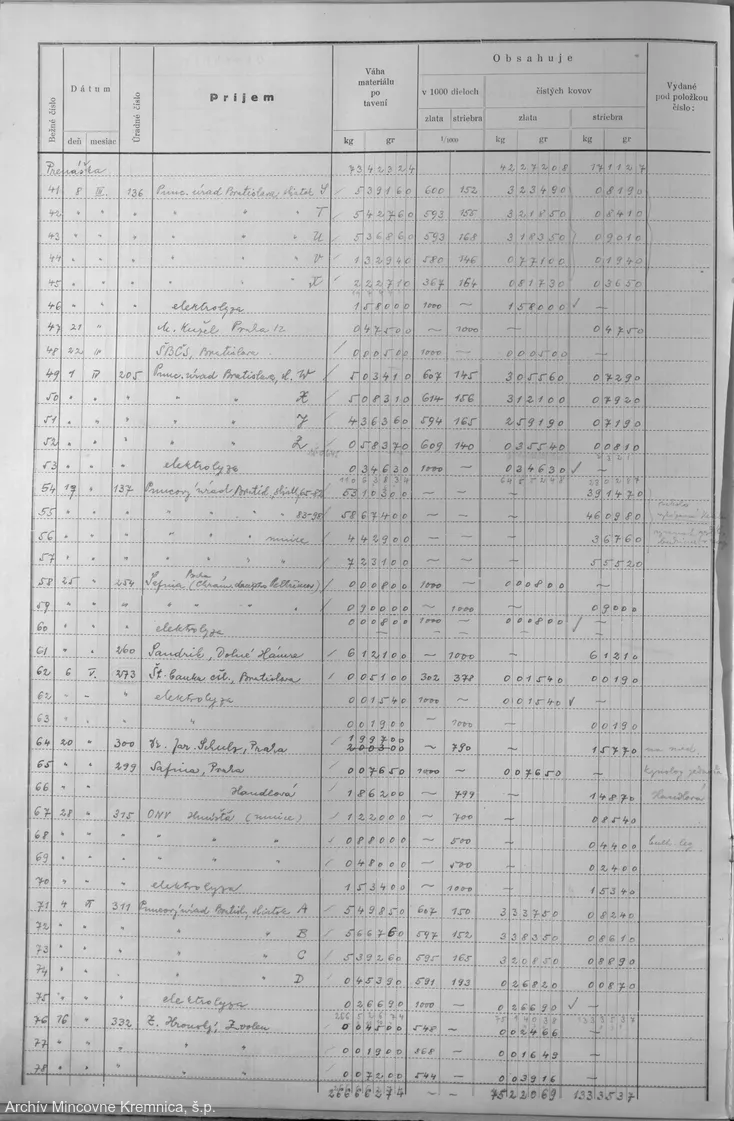 Bežné číslo
Dátum
deň mesiac
Úradné číslo
Príjem
Váha materiálu po tavení
kg gr
Obsahuje
v 1000 dieloch
zlata striebra
1/1000
čistých kovov
zlata striebra
kg gr kg gr
Vydané pod položkou číslo:
Prenáška 7342324 4227208 171127
41 8 III. 136 Punc. úrad Bratislava, zliatok S 539160 600 152 323490 08190
42 " " " " " T 542760 593 155 321850 08410
43 " " " " " U 536860 593 168 318350 09010
44 " " " " " V 132940 580 146 077100 01940
45 " " " " " 222710 367 164 081730 03650
46 " " " elektrolyza 158000 1000 — 158000 —
47 21 " Praha 12 047500 — 1000 — 04750
48 22 " ŠBČS, Bratislava 000500 1000 — 000500 —
49 1 IV 205 Punc. úrad Bratislava, zl. W 503410 607 145 305560 07290
50 " " " " " X 508310 614 156 312100 07920
51 " " " " " Y 436360 594 165 259190 07190
52 " " " " " Z 058370 609 140 035540 00810
53 " " " elektrolyza 034630 1000 — 034630 —
54 19 " 137 Puncový úrad 631030 — — — 391470
55 " " " " " " 83-98 586740 — — — 460980
56 " " " " " mince 442900 — — — 36760
57 " " " " " " 723100 — — — 55520
58 25 " 254 Safina 000800 1000 — 000800 —
59 " " " " " " 090000 — 1000 — 09000
60 " elektrolyza 000800 1000 — 000800 —
61 " " 260 Sandrik, Dolné Hámre 612100 — 1000 — 61210
62 6 V. 273 Št. banka čsl., Bratislava 005100 302 378 001540 00190
62 " " " elektrolyza 001540 1000 — 001540 —
63 " " " " 001900 — 1000 — 00190
199700
64 20 " 300 Jar. Schulz, Praha 200300 — 790 — 15770
65 " 299 Safina, Praha 007650 1000 — 007650 —
66 " " Handlová 186200 — 799 — 14870 Handlová
67 28 " 315 ONV (mince) 122000 — 700 — 08540
68 " " " " " " 088000 — 500 — 04400
69 " " " " " " 048000 — 500 — 02400
70 " " " elektrolyza 153400 — 1000 — 15340
71 4 VI 311 Puncový úrad Bratisl., zliatok A 549850 607 150 333750 08240
72 " " " " " B 566760 597 152 338350 08610
73 " " " " " C 539260 595 165 320850 08890
74 " " " " " D 045390 591 193 026820 00870
75 " " " elektrolyza 026690 1000 — 026690 —
76 16 " 332 Z. Hronský, Zvolen 004500 548 — 002466
77 " " " " 001900 868 — 001649
78 " " " " 007200 544 — 003916
26666274 — — 7522069 1333537
Archív Mincovne Kremnica, š.p.